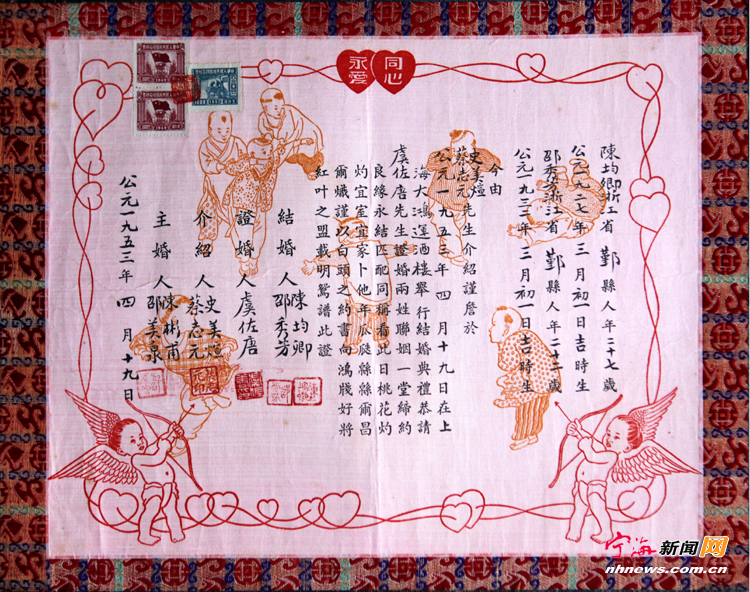 同心
永愛
陳均卿浙江省鄞縣人年二十七歲
公元一九二七年三月初一日吉時生
邵秀芳浙江省鄞縣人年二十二歲
公元一九三二年三月初一日吉時生
今由
史美煊
蔡志元先生介紹謹詹於
公元一九五三年四月十九日在上
海大鴻運酒樓舉行結婚典禮恭請
虞佐唐先生證婚兩姓聯姻一堂締約
良緣永結匹配同稱看此日桃花灼
灼宜室宜家卜他年瓜瓞緜緜爾昌
爾熾謹以白頭之約書向鴻牋好將
紅叶之盟載明鴛譜此證
結婚人陳均卿
邵秀芳
證婚人虞佐唐
介紹人史美煊
蔡志元
主婚人陳彬甫
邵美
公元一九五三年四月十九日
宁海新闻网
www.nhnews.com.cn